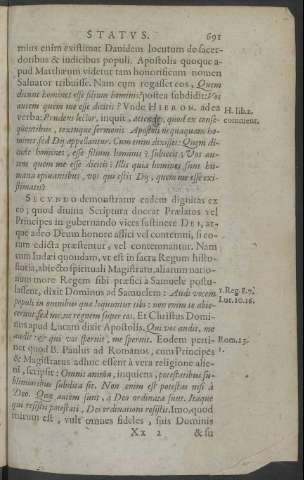 STATVS. 691
mius enim existimat Davidem locutum de sacer-
dotibus & iudicibus populi. Apostolis quoque a-
pud Matthæum videtur tam honorificum nomen
Salvator tribuisse. Nam cum rogasset eos, Quem
dicunt homines esse filium hominis? postea subdidit: Vos
autem quem me esse dicitis? Vnde HIERON. ad ea
verba: Prudens lector, inquit, attende, quod ex conse-
quentibus, textuque sermonis Apostoli nequaquam ho-
mines, sed Dij appellantur. Cum enim dixisset: Quem di-
cunt homines, esse filium hominis? subiecit; Vos au-
tem quem me esse dicitis? Illis quia homines sunt hu-
mana opinantibus, vos qui estis Dij, quem me esse exi-
stimatis?
SECVNDO demonstratur eadem dignitas ex
eo; quod divina Scriptura docear Prælatos vel
Principes in gubernando vices sustinere DEI, at-
que adeo Deum honore affici vel contemni, si eo-
rum edicta præstentur, vel contemnantur. Nam
cum Iudæi quondam, vt est in sacra Regum histo-
ria, abiecto spirituali Magistratu, aliarum natio-
num more Regem sibi præfici a Samuele postu-
lassent, dixit Dominus ad Samuelem: Audi vocem
populi in omnibus quæ loquuntur tibi: non enim te abie-
cerunt, sed me, ne regnem super eos. Et Christus Domi-
nus apud Lucam dixit Apostolis. Qui vos audit, me
audit: & qui vos spernit, me spernit. Eodem perti-
net quod B. Paulus ad Romanos, cum Principes
& Magistratus adhuc essent à vera religione alie-
ni, scripsit: Omnis anima, inquiens, potestatibus su-
blimioribus subdita sit. Non enim est potestas nisi à
Deo. Quæ autem sunt, à Deo ordinatæ sunt. Itaque
qui resistit potestati, Dei ordinationi resistit. Imo, quod
mirum est, vult omnes fideles, suis Dominis
Xx 2 & su
H. lib. 2.
comment.
1. Reg. 8. 7.
Luc. 10. 16.
Rom. 13.
1.